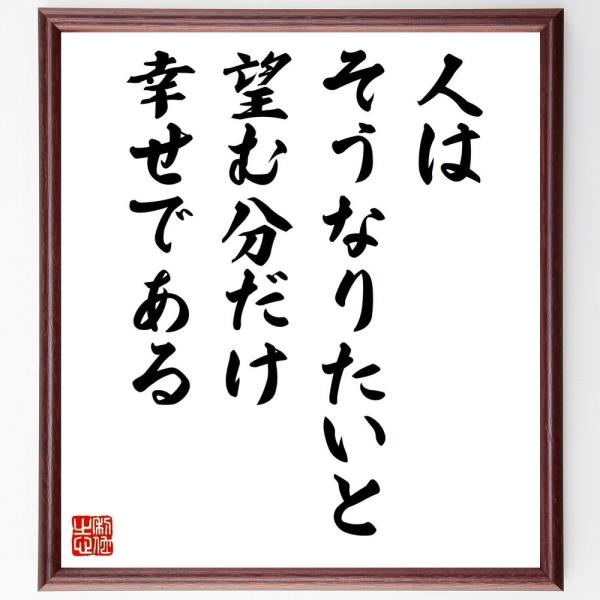 人は
そうなりたいと
望む分だけ
幸せである